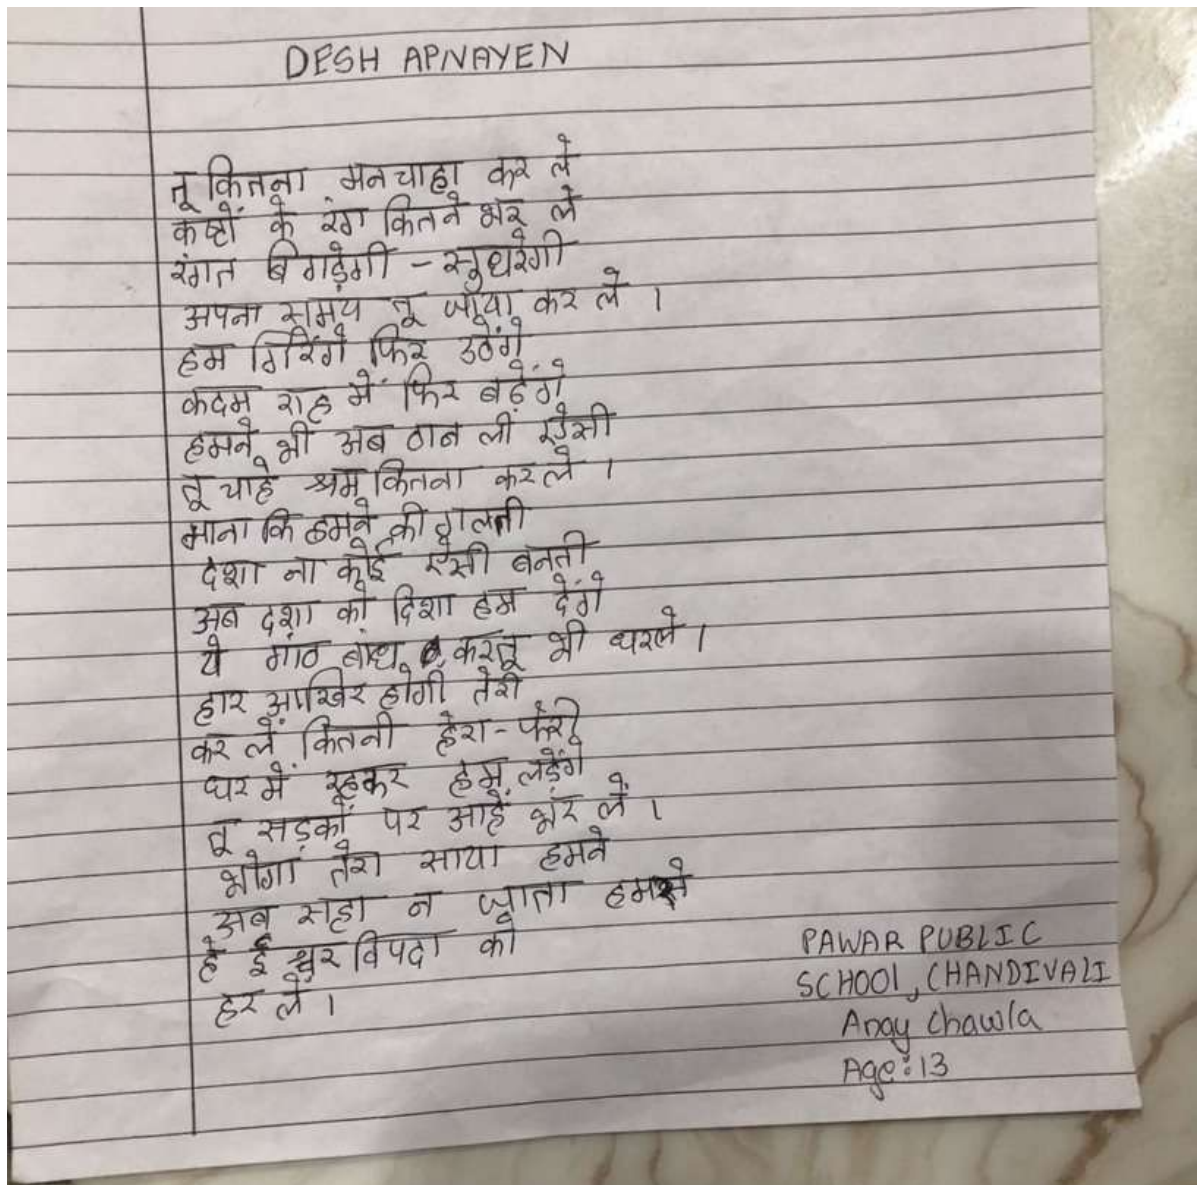 DESH APNAYEN
तू कितना मनचाहा कर ले
कष्टों के रंग कितने भर ले
रंगत बिगड़ेगी - सुधरेगी
अपना समय तू जाया कर ले ।
हम गिरेंगे फिर उठेंगे
कदम राह में फिर बढ़ेंगे
हमने भी अब ठान ली ऐसी
तू चाहे श्रम कितना करले ।
माना कि हमने की गलती
दशा ना कोई ऐसी बनती
अब दशा को दिशा हम देंगे
ये गांठ बांध करतू भी धरले ।
हार आखिर होगी तेरी
कर लें कितनी हेरा-फेरी
घर में रहकर हम लड़ेंगे
तू सड़कों पर आहें भर लें ।
भोगा तेरा साया हमने
अब सहा न जाता हमसे
हे ईश्वर विपदा को
हर ले ।
PAWAR PUBLIC
SCHOOL, CHANDIVALI
Anay Chawla
Age: 13